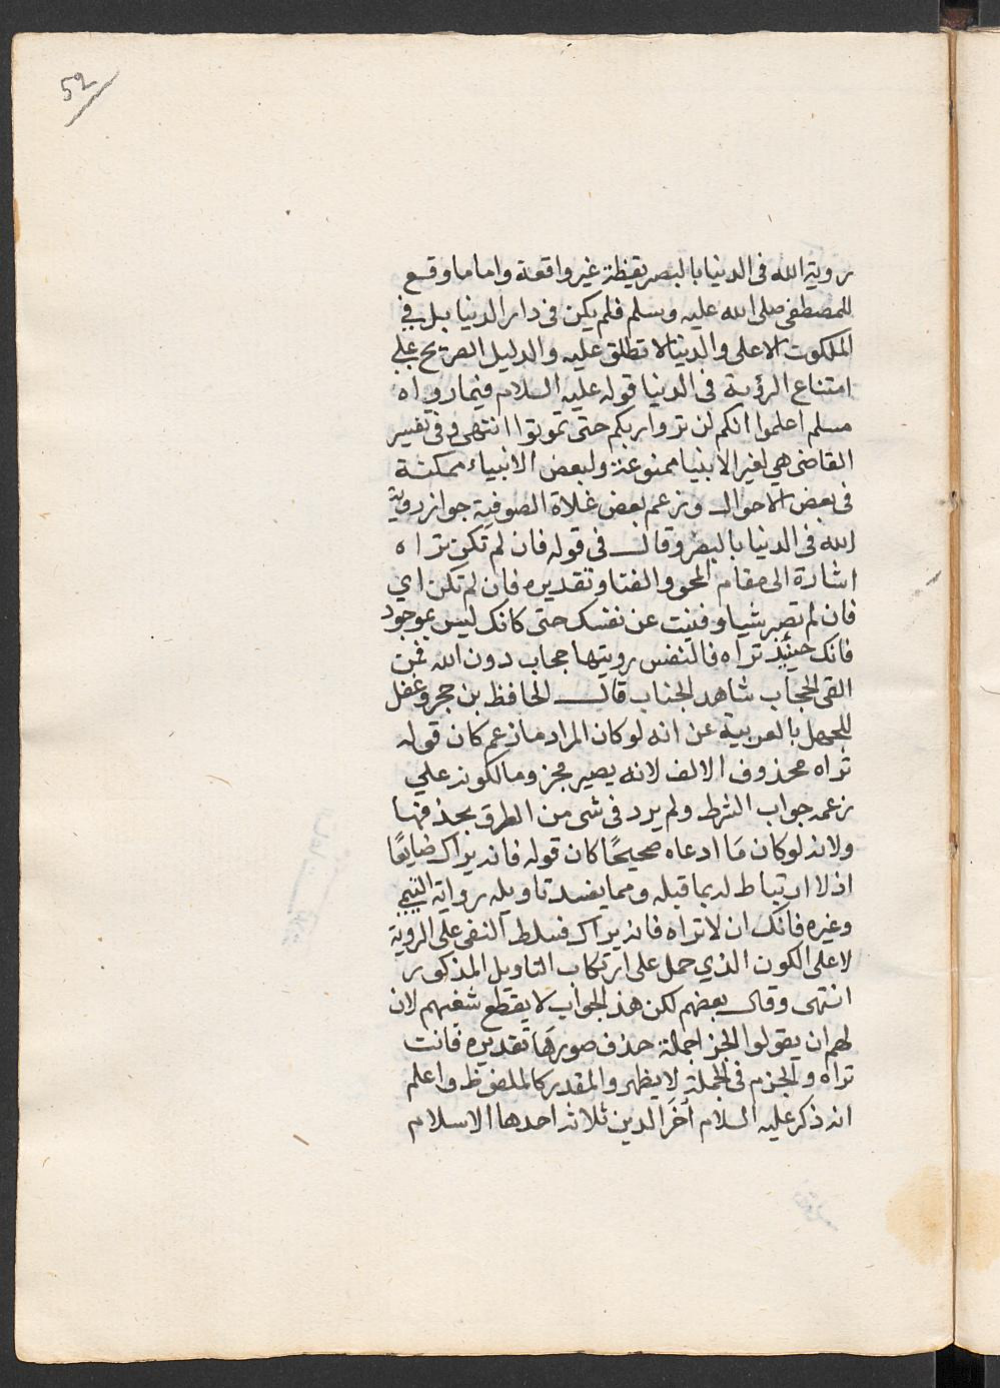 52
روية الله في الدنيا بالبصر يقظة غير واقعة واما ما وقع
للمصطفى صلى الله عليه وسلم فلم يكن في دار الدنيا بل في
الملكوت الاعلى والدنيا لا تطلق عليه والدليل الصريح على
امتناع الرؤية في الدنيا قوله عليه السلام فيما رواه
مسلم اعلموا انكم لن تروا ربكم حتى تموتوا انتهى وفي تفسير
القاضي هي لغير الانبيا ممنوعة ولبعض الانبياء ممكنة
في بعض الاحوال وزعم بعض غلاة الصوفية جواز روية
الله في الدنيا بالبصر وقال في قوله فان لم تكن تراه
اشارة الى مقام المحو والفنا وتقديره فان لم تكن اي
فان لم تصر شيا وفنيت عن نفسك حتى كانك ليس بموجود
فانك حينئذ تراه فالنفس رويتها حجاب دون الله فمن
القى الحجاب شاهد الجناب قال الحافظ بن حجر وغفل
للجهل بالعربية عن انه لو كان المراد ما زعم كان قوله
تراه محذوف الالف لانه يصير مجزوما لكونه علي
زعمه جواب الشرط ولم يرد في شى من الطرق بحذفها
ولانه لو كان مَا ادعاه صحيحًا كان قوله فانه يراك ضايعًا
اذ لا ارتباط له بما قبله ومما يفسد تاويله رواية
وغيره فانك ان لا تراه فانه يراك فسلط النفي على الروية
لا على الكون الذي حمل على ارتكاب التاويل المذكور
انتهى وقال بعضهم لكن هذ الجواب لا يقطع شغبهم لان
لهم ان يقولوا الجزا جملة حذف صدرها تقديره فانت
تراه والجزم في الجملة لا يظهر والمقدر كالملفوظ واعلم
انه ذكر عليه السلام آخر الدين ثلاثه احدها الاسلام